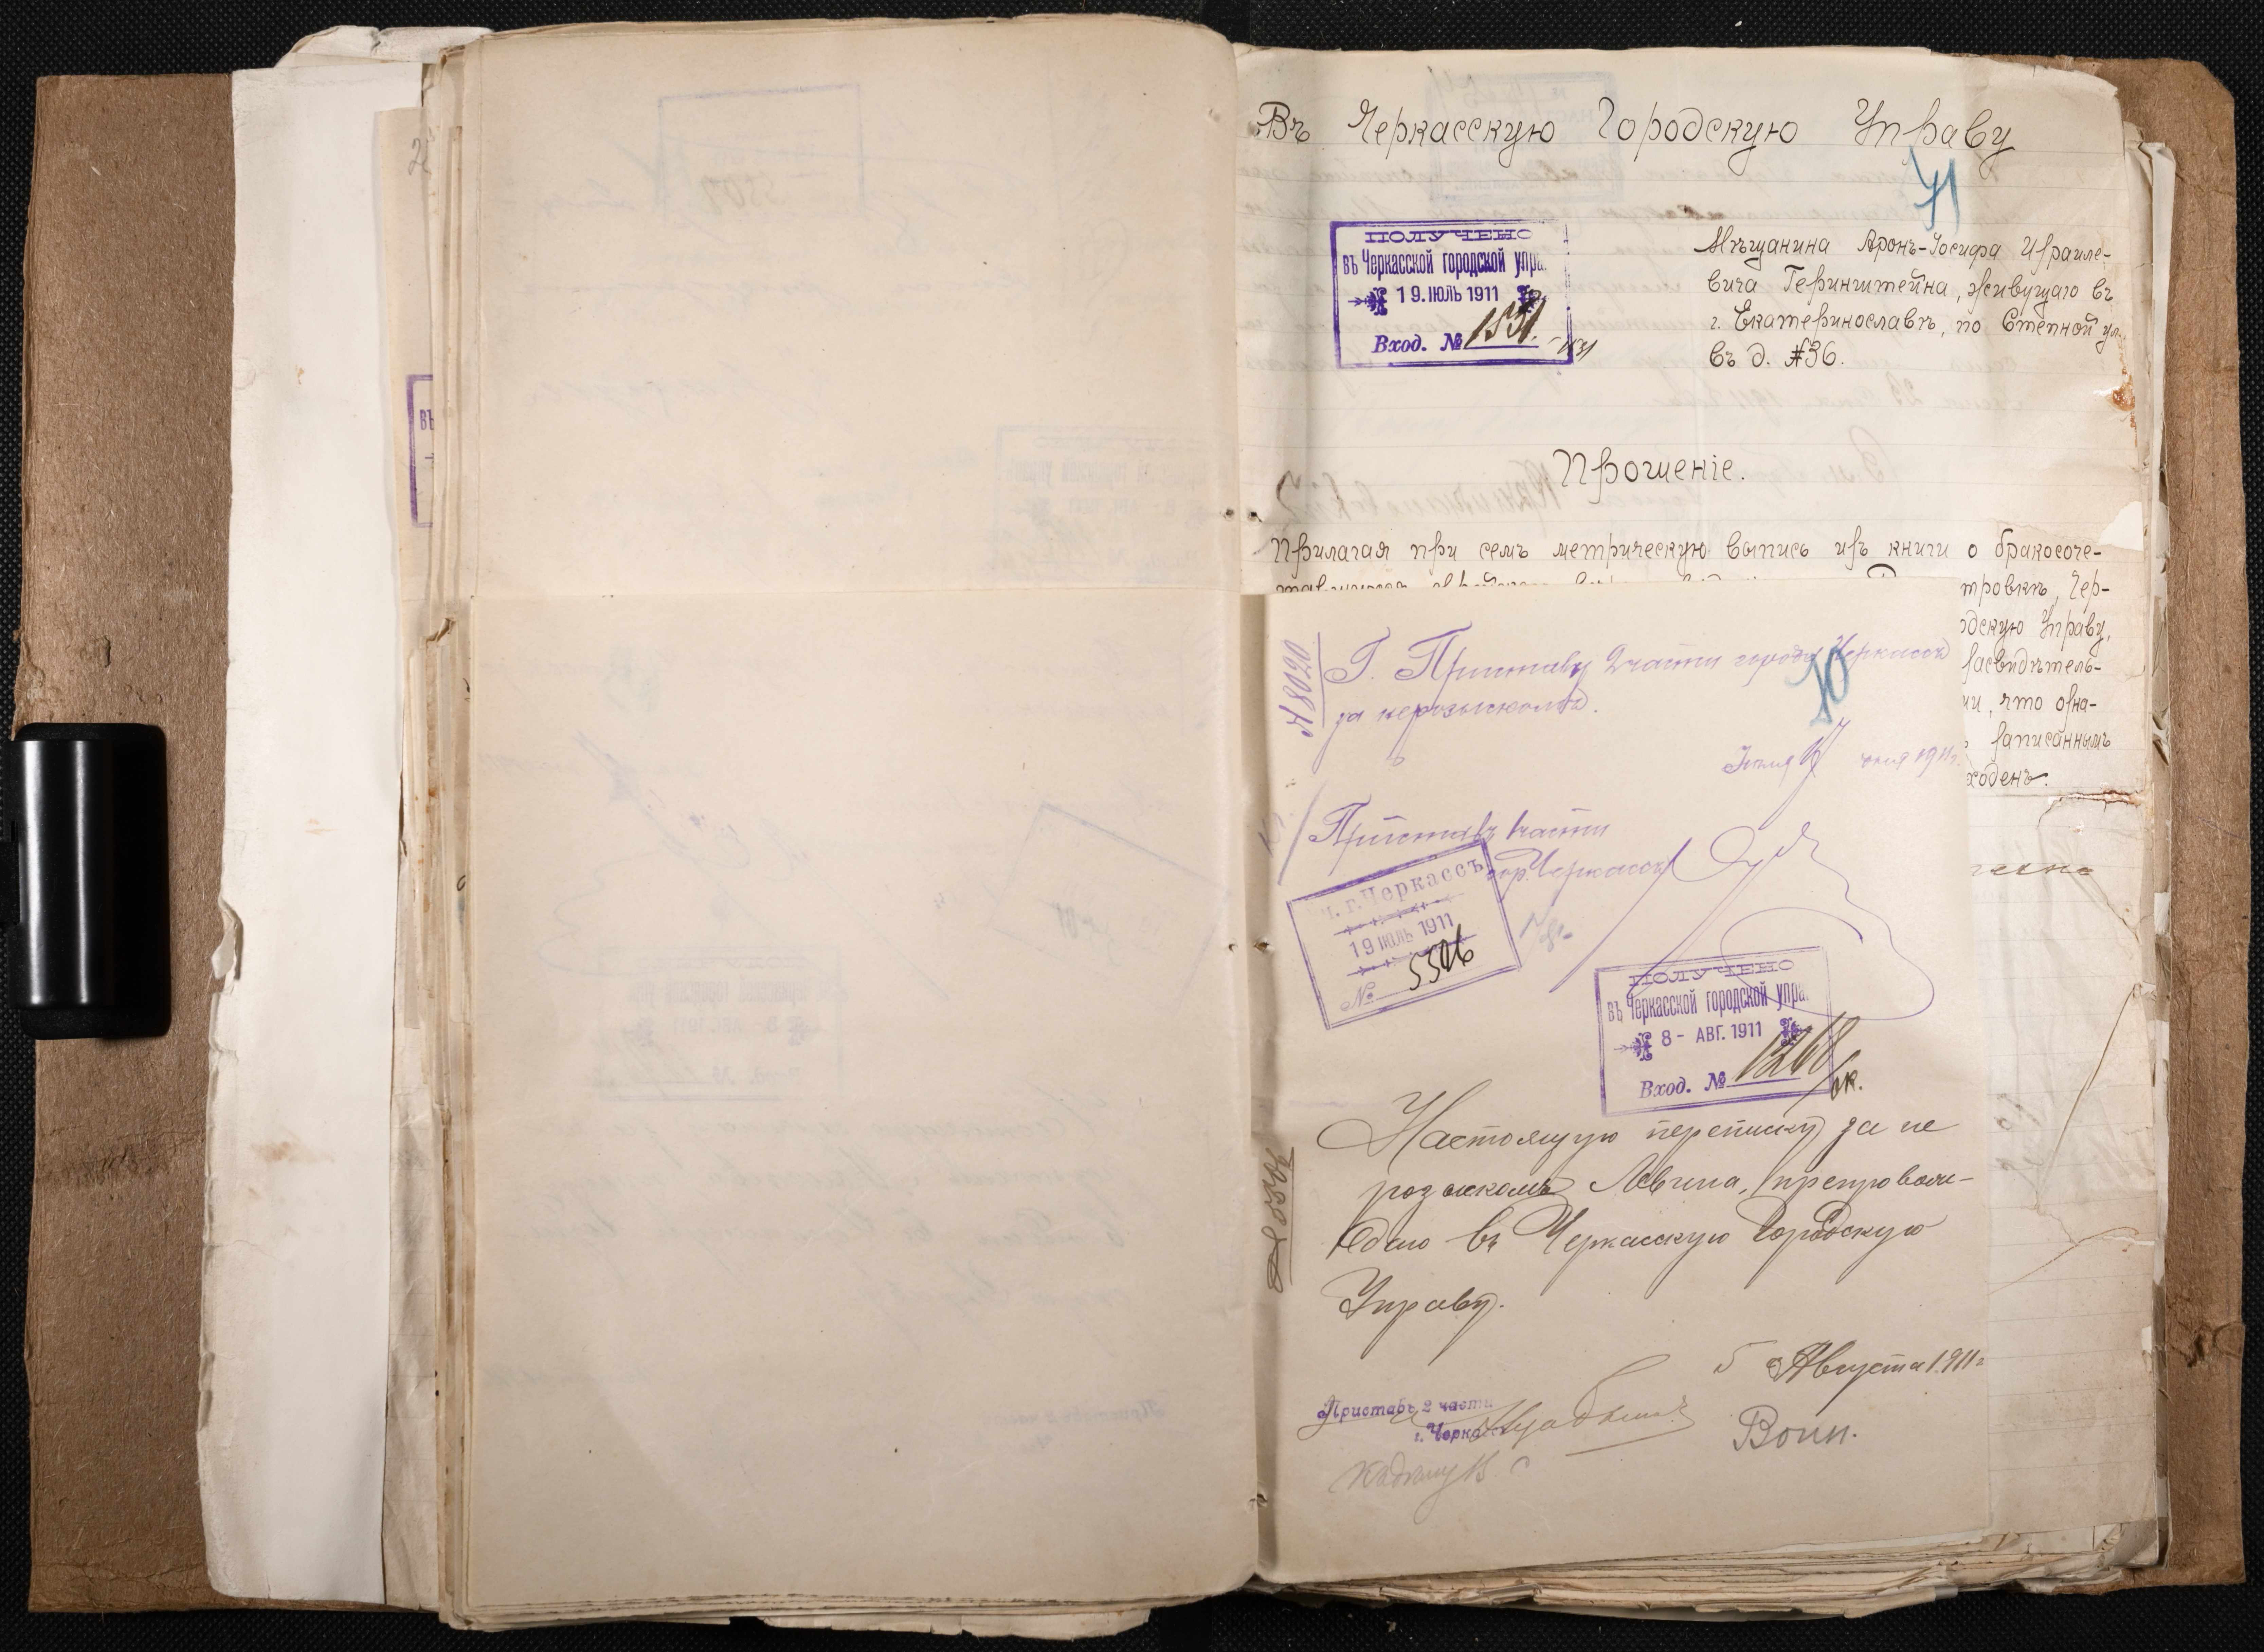 Въ Черкасскую Городскую Управу
71
ПОЛУЧЕНО
въ Черкасской городской упра.
19. ІЮЛЬ 1911
Вход. № 1531.
Мѣщанина Аронъ-Іосифа Израиле-
вича Геринштейна, живущаго въ
г. Екатеринославѣ, по Степной ул.
въ д. №36.
Прошеніе.
Прилагая при семъ метрическую выпись изъ книги о бракосоче-
тровкѣ, Чер-
одскую Управу,
засвидѣтель-
ии, что озна-
записаннымъ
ходенъ.
№ 8020
Г. Приставу 2 части города Черкассъ
за нерозыскомъ.
70
Іюля 1911 г.
Приставъ 1 части
гор. Черкассъ
ч. г. Черкассъ
19 ІЮЛЬ 1911
№ 5506
ПОЛУЧЕНО
въ Черкасской городской упра.
8 - АВГ. 1911
Вход. № 1268
Настоящую переписку за не
розыскомъ Левина, препровож-
даю въ Черкасскую Городскую
Управу.
5 Августа 1911 г
Приставъ 2 части
г. Черкассъ